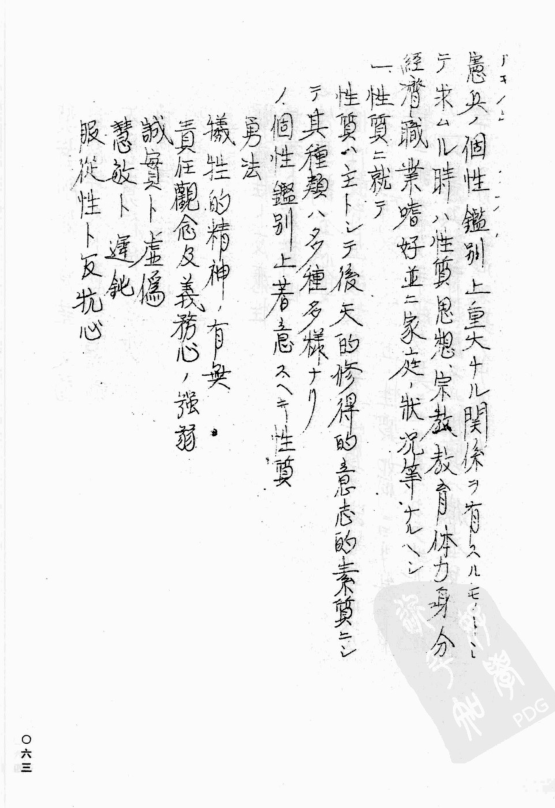 憲兵ノ個性鑑別上重大ナル関係ヲ有スルモノトシ
テ求ムル時ハ性質思想宗教教育体力身分
経済職業嗜好並ニ家庭ノ状況等ナルヘシ
一、性質ニ就テ
性質ハ主トシテ後天的修得的意志的素質ニシ
テ其種類ハ多種多様ナリ
ノ個性鑑別上著意スヘキ性質
勇法
犠牲的精神ノ有無
責任観念及義務心ノ強弱
誠實ト虚偽
慧敏ト遅鈍
服従性ト反抗心
〇六三
PDG